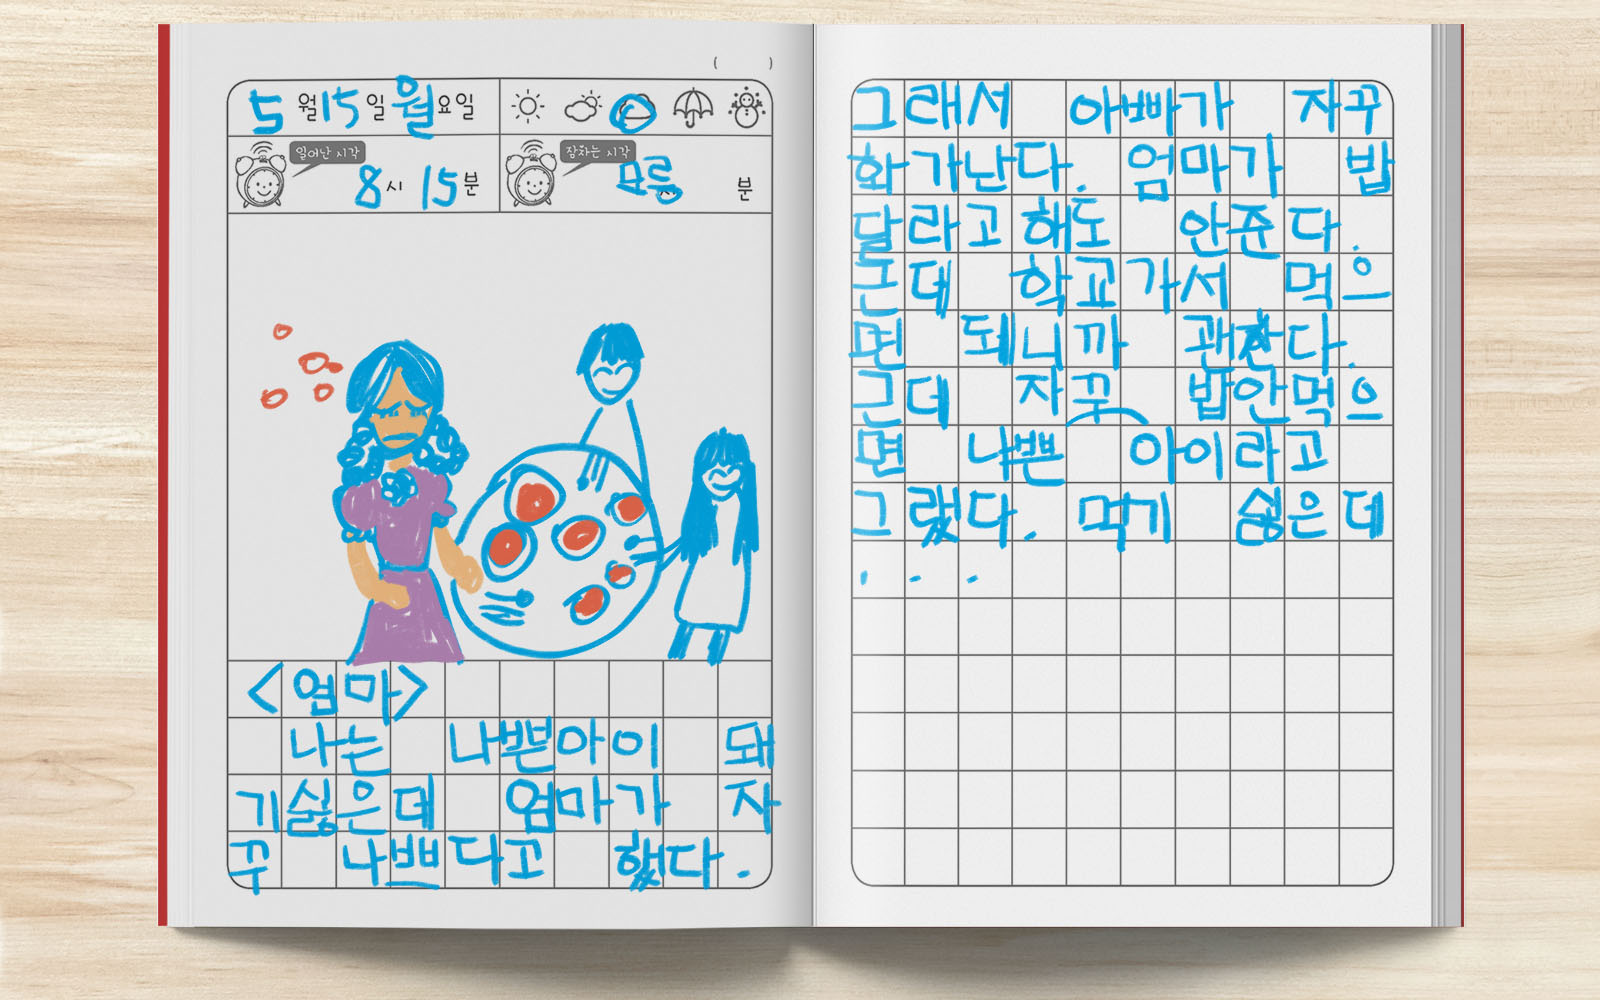 ( )
5월 15일 월요일
일어난 시각
8시 15분
잠자는 시각
모름시 분
<엄마>
나는 나쁜아이 돼
기싫은데 엄마가 자
꾸 나쁘다고 했다.
그래서 아빠가 자꾸
화가난다. 엄마가 밥
달라고해도 안준다.
근데 학교가서 먹으
면 돼니까 괜찬다.
근데 자꾸 밥안먹으
면 나쁜 아이라고
그랬다. 먹기 싫은데
...